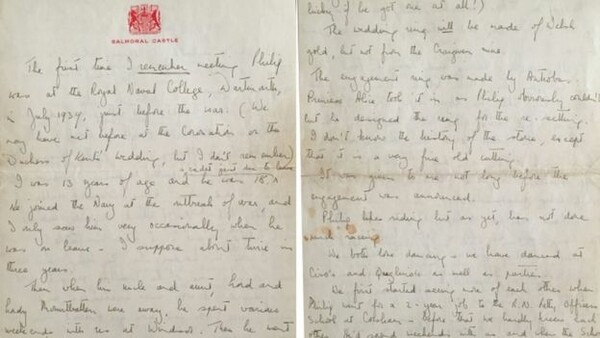 BALMORAL CASTLE
The first time I remember meeting Philip
was at the Royal Naval College, Dartmouth,
in July 1939, just before the war. (We
may have met before at the Coronation or the
Duchess of Kent's wedding, but I don't remember)
I was 13 years of age and he was 18
He joined the Navy at the outbreak of war, and
I only saw him very occasionally when he
was on leave - I suppose about twice in
three years
Then when his uncle and aunt, Lord and
Lady Mountbatten were away, he spent various
weekends with us at Windsor. Then he went
lucky if he got one at all!)
The wedding ring will be made of Welsh
gold, but not from the Craigwen mine
The engagement ring was made by Antrobus.
Princess Alice took it in as Philip obviously couldn't
but he designed the ring for the re-setting.
I don't know the history of the stone, except
that it is a very fine old cutting
It was given to me not long before the
engagement was announced.
Philip likes riding but as yet, has not done
much racing
We both love dancing - we have danced at
Ciro's and Quaglino's as well as parties.
We first started seeing more of each other when
Philip went for a 2-year job to the R.N. Petty Officers
School at Corsham - before that we hardly knew each
other. He'd spend weekends with us, and when the School